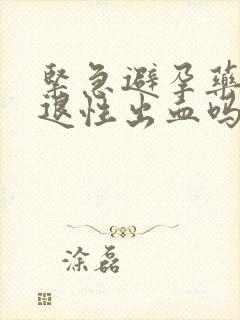 緊急避孕藥
退性出血吗
涂磊